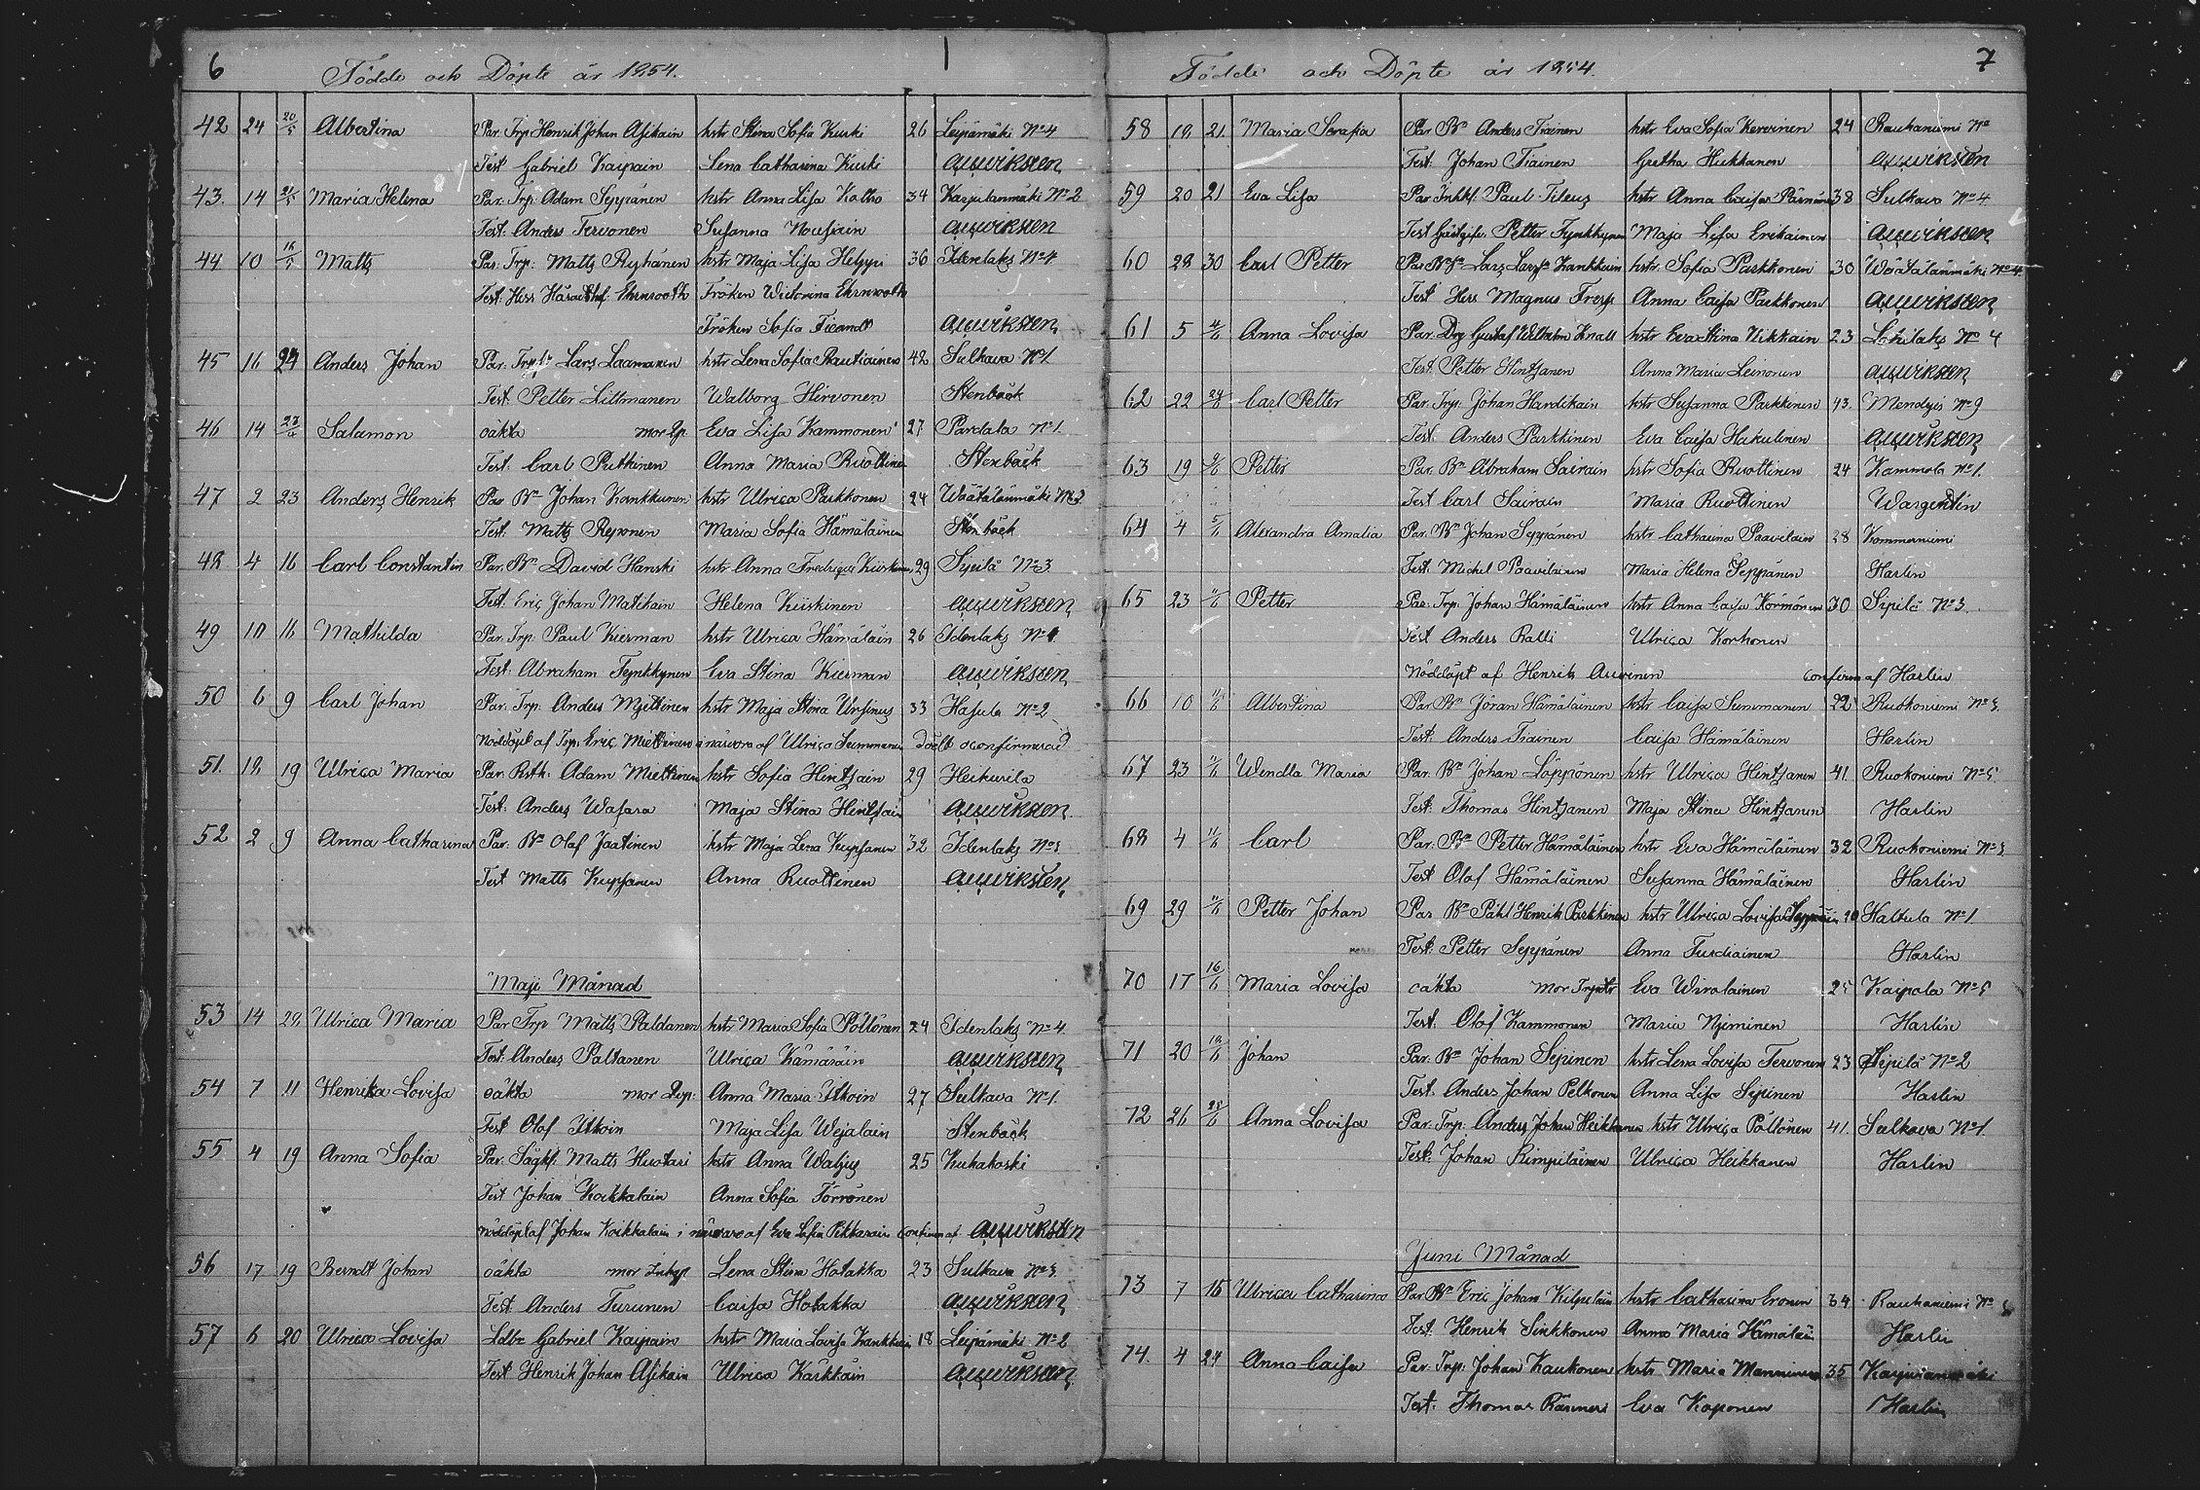 6 Födde och Döpte år 1854.
42 24 20/5 Albertina Par. Trp Henrik Johan Asikain hstr Stina Sofia Kuski 26 Leipämäki No 4
Test Gabriel Kaipain Lena Catharina Kuski Auwiksten
43. 14 21/5 Maria Helena Par. Trp. Adam Seppänen hstr Anna Lisa Katho 34 Karjulanmäki No 2
Test. Anders Tervonen Susanna Nousiain Auwiksten
44 10 16/5 Matts Par. Trp: Matts Ryhänen hstr Maja Lisa Helppi 36 Idenlaks No 4
Test. Herr Häradshf. Ehrnrooth Fröken Victorina Ehrnrooth
Fröken Sofia Ticandt Auwiksten
45 16 24 Anders Johan Par: Trp Lars Laamanen hstr Lena Sofia Rautiainen 42 Sulkava No 1.
Test. Petter Littmanen Walborg Hirvonen Stenbäck
46 14 23/4 Salamon oäkta mor Lp. Eva Lisa Kammonen 27 Pardala No 1.
Test. Carl Puttinen Anna Maria Ruottinen Stenbäck
47 2 23 Anders Henrik Par Bn Johan Kankkunen hstr Ulrica Parkkonen 24 Wäätälänmäki No 2
Test. Matts Reponen Maria Sofia Hämäläinen Stenbäck
48 4 16 Carl Constantin Par. Bn David Hanski hstr Anna Fredrique Kiiskinen 29 Sipilä No 3
Test. Eric Johan Matikain Helena Kiiskinen Auwiksten
49 10 16 Mathilda Par. Trp. Paul Kierman hstr Ulrica Hämäläin 26 Idenlaks No 1
Test. Abraham Tynkkynen Eva Stina Kierman Auwiksten
50 6 9 Carl Johan Par. Trp. Anders Mjettinen hstr Maja Stina Ursinus 33 Hasula No 2
Nöddöpt af Trp. Eric Miettinen i närvaro af Ulrica Summanen dödt oconfirmerad
51. 18 19 Ulrica Maria Par. Rsth. Adam Miettinen hstr Sofia Hintsain 29 Heikurila
Test. Anders Wasara Maja Stina Hintsain Auwiksten
52 2 9 Anna Catharina Par. Bn Olof Jaatinen hstr Maja Lena Kupsanen 32 Idenlaks No 3
Test Matts Kupsanen Anna Ruottinen Auwiksten
Maji Månad
53 14 28 Ulrica Maria Par Trp Matts Paldanen hstr Maria Sofia Pöllänen 24 Idenlaks No 4
Test. Anders Paltanen Ulrica Kämäräin Auwiksten
54 7 11 Henrika Lovisa oäkta mor Lp. Anna Maria Itkoin 27 Sulkava No 1.
Test Olof Itkoin Maja Lisa Wejalain Stenbäck
55. 4 19 Anna Sofia Par. Sägkf. Matts Huotari hstr Anna Waljus 25 Kuhakoski
Test Johan Koikkalain Anna Sofia Törrönen
Nöddöpt af Johan Koikkalain i närvaro af Eva Sofia Pikkarain confirm af Auwiksten
56 17 19 Berndt Johan oäkta mor Inhys Lena Stina Hotakka 23 Sulkava No 3.
Test. Anders Turunen Caisa Hotakka Auwiksten
57 6 20 Ulrica Lovisa Ldbr Gabriel Kaipain hstr Maria Lovisa Kankkuin 18 Leipämäki No 2
Test Henrik Johan Asikain Ulrica Kärkkäin Auwiksten
Födde och Döpte år 1854. 7
58 18 21 Maria Serafia Par Bn Anders Tiainen hstr Eva Sofia Kervinen 24 Rauhaniemi No
Test. Johan Tiainen Gretha Hukkanen Auwiksten
59 20 21 Eva Lisa Par Inhkf. Paul Tileus hstr Anna Caisa Pärnänen 38 Sulkava No 4
Test Gästgifv. Petter Tynkkynen Maja Lisa Erikainen Auwiksten
60 28 30 Carl Petter Par Bn Lars Larss Kankkuin hstr Sofia Parkkonen 30 Wäätälänmäki No 4
Test Herr Magnus Fresp Anna Caisa Parkkonen Auwiksten
61 5 4/6 Anna Lovisa Par. Drg Gustaf Wilhelm Knall hstr Eva Stina Nikkain 23 Lohilaks No 4
Test. Petter Hintsanen Anna Maria Leinonen Auwiksten
62 22 24/6 Carl Petter Par. Trp. Johan Hardikain hstr Susanna Parkkinen 43. Mendyis No 9
Test. Anders Parkkinen Eva Caisa Hakulinen Auwiksten
63 19 9/6 Petter Par. Bn Abraham Sairain hstr Sofia Ruottinen 24 Kammola No 1.
Test Carl Sairain Maria Ruottinen Wargentin
64 4 5/6 Alexandra Amalia Par. Bn Johan Seppänen hstr Catharina Paavilain 28 Kommerniemi
Test. Michel Paavilainen Maria Helena Seppänen Harlin
65 23 11/6 Petter Par. Trp. Johan Hämäläinen hstr Anna Caisa Körmönen 30 Sipilä No 3.
Test Anders Ralli Ulrica Korhonen
Nöddöpt af Henrik Auvinen confirm af Harlin
66 10 11/6 Albertina Par Bn Jöran Hämäläinen hstr Caisa Summanen 22 Ruokoniemi No 3.
Test. Anders Tiainen Caisa Hämäläinen Harlin
67 23 11/6 Wendla Maria Par. Bn Johan Löppönen hstr Ulrica Hintsanen 41. Ruokoniemi No 5
Test. Thomas Hintsanen Maja Stina Hintsanen Harlin
68 4 11/6 Carl Par. Bn Petter Hämäläinen hstr Eva Hämäläinen 32 Ruokoniemi No 3
Test Olof Hämäläinen Susanna Hämäläinen Harlin
69 29 11/6 Petter Johan Par Bn Påhl Henrik Parkkinen hstr Ulrica Lovisa Seppänen 20 Haltula No 1
Test. Petter Seppänen Anna Turdiainen Harlin
70 17 16/6 Maria Lovisa oäkta mor Trpdtr Eva Wirolainen 25 Kaipola No 5
Test. Olof Kammonen Maria Njeminen Harlin
71 20 18/6 Johan Par. Bn Johan Sipinen hstr Lena Lovisa Tervonen 23 Sipilä No 2
Test. Anders Johan Pelkonen Anna Lisa Sipinen Harlin
72 26 28/6 Anna Lovisa Par. Trp. Anders Johan Heikkanen hstr Ulrica Pöllönen 41. Sulkava No 1.
Test. Johan Rimpiläinen Ulrica Heikkanen Harlin
Juni Månad
73 7 15 Ulrica Catharina Par Bn Eric Johan Kilpeläin hstr Catharina Eronen 34 Rauhaniemi No
Test. Henrik Sinkkonen Anna Maria Hämäläi Harlin
74. 4 24 Anna Caisa Par. Trp. Johan Kaukonen hstr Maria Manninen 35 Karjulanmäki
Test. Thomas Räsinen Eva Kaponen Harlin